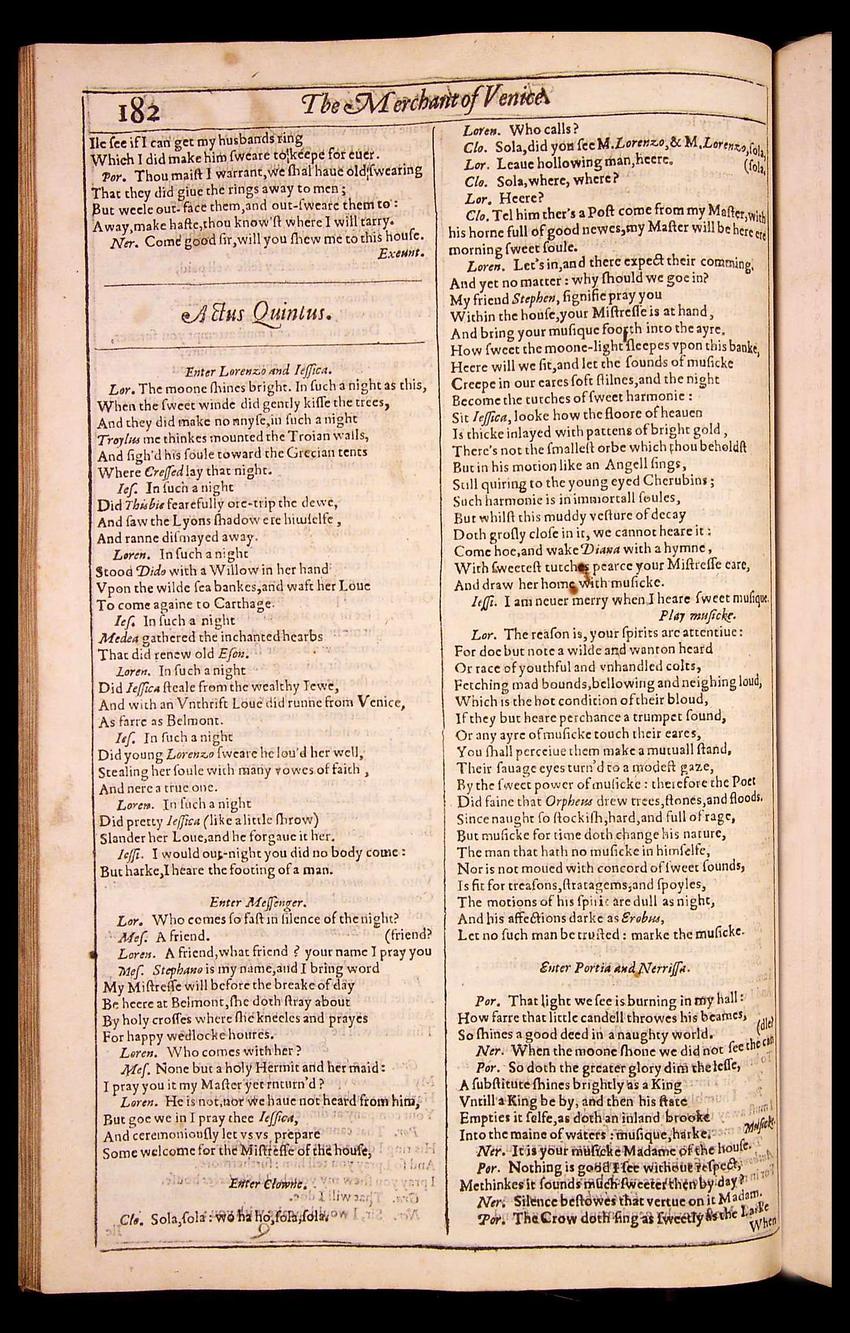 182
The Merchant of Venice.
Ile ſee if I can get my husbands ring
Which I did make him ſweare to keepe for euer.
Por. Thou maiſt I warrant, we ſhal haue old ſwearing
That they did giue the rings away to men;
But weele out-face them, and out-ſweare them to:
Away, make haſte, thou know'ſt where I will tarry.
Ner. Come good ſir, will you ſhew me to this houſe.
Exeunt.
Actus Quintus.
Enter Lorenzo and Ieſſica.
Lor. The moone ſhines bright. In ſuch a night as this,
When the ſweet winde did gently kiſſe the trees,
And they did make no nnyſe, in ſuch a night
Troylus me thinkes mounted the Troian walls,
And ſigh'd his ſoule toward the Grecian tents
Where Creſſed lay that night.
Ieſ. In ſuch a night
Did Thisbie fearefully ore-trip the dewe,
And ſaw the Lyons ſhadow ere himſelfe,
And ranne diſmayed away.
Loren. In ſuch a night
Stood Dido with a Willow in her hand
Vpon the wilde ſea bankes, and waft her Loue
To come againe to Carthage.
Ieſ. In ſuch a night
Medea gathered the inchanted hearbs
That did renew old Eſon.
Loren. In ſuch a night
Did Ieſſica ſteale from the wealthy Iewe,
And with an Vnthrift Loue did runne from Venice,
As farre as Belmont.
Ieſ. In ſuch a night
Did young Lorenzo ſweare he lou'd her well,
Stealing her ſoule with many vowes of faith,
And nere a true one.
Loren. In ſuch a night
Did pretty Ieſſica (like a little ſhrow)
Slander her Loue, and he forgaue it her.
Ieſſi. I would out-night you did no body come:
But harke, I heare the footing of a man.
Enter Meſſenger.
Lor. Who comes ſo faſt in ſilence of the night?
Meſ. A friend. (friend?
Loren. A friend, what friend? your name I pray you
Meſ. Stephano is my name, and I bring word
My Miſtreſſe will before the breake of day
Be heere at Belmont, ſhe doth ſtray about
By holy croſſes where ſhe kneeles and prayes
For happy wedlocke houres.
Loren. Who comes with her?
Meſ. None but a holy Hermit and her maid:
I pray you it my Maſter yet rnturn'd?
Loren. He is not, nor we haue not heard from him,
But goe we in I pray thee Ieſſica,
And ceremoniouſly let vs vs prepare
Some welcome for the Miſtreſſe of the houſe,
Enter Clowne.
Clo. Sola, ſola: wo ha ho, ſola, ſola.
Loren. Who calls?
Clo. Sola, did you ſee M. Lorenzo, & M. Lorenzo, ſola,
Lor. Leaue hollowing man, heere. (ſola,
Clo. Sola, where, where?
Lor. Heere?
Clo. Tel him ther's a Poſt come from my Maſter, with
his horne full of good newes, my Maſter will be here ere
morning ſweet ſoule.
Loren. Let's in, and there expect their comming,
And yet no matter: why ſhould we goe in?
My friend Stephen, ſignifie pray you
Within the houſe, your Miſtreſſe is at hand,
And bring your muſique foorth into the ayre.
How ſweet the moone-light ſleepes vpon this banke,
Heere will we ſit, and let the ſounds of muſicke
Creepe in our eares ſoft ſtilnes, and the night
Become the tutches of ſweet harmonie:
Sit Ieſſica, looke how the floore of heauen
Is thicke inlayed with pattens of bright gold,
There's not the ſmalleſt orbe which thou beholdſt
But in his motion like an Angell ſings,
Still quiring to the young eyed Cherubins;
Such harmonie is in immortall ſoules,
But whilſt this muddy veſture of decay
Doth groſly cloſe in it, we cannot heare it:
Come hoe, and wake Diana with a hymne,
With ſweeteſt tutches pearce your Miſtreſſe eare,
And draw her home with muſicke.
Ieſſi. I am neuer merry when I heare ſweet muſique.
Play muſicke.
Lor. The reaſon is, your ſpirits are attentiue:
For doe but note a wilde and wanton heard
Or race of youthful and vnhandled colts,
Fetching mad bounds, bellowing and neighing loud,
Which is the hot condition of their bloud,
If they but heare perchance a trumpet ſound,
Or any ayre of muſicke touch their eares,
You ſhall perceiue them make a mutuall ſtand,
Their ſauage eyes turn'd to a modeſt gaze,
By the ſweet power of muſicke: therefore the Poet
Did faine that Orpheus drew trees, ſtones, and floods.
Since naught ſo ſtockiſh, hard, and full of rage,
But muſicke for time doth change his nature,
The man that hath no muſicke in himſelfe,
Nor is not moued with concord of ſweet ſounds,
Is fit for treaſons, ſtratagems, and ſpoyles,
The motions of his ſpirit are dull as night,
And his affections darke as Erobus,
Let no ſuch man be truſted: marke the muſicke.
Enter Portia and Nerriſſa.
Por. That light we ſee is burning in my hall:
How farre that little candell throwes his beames,
So ſhines a good deed in a naughty world. (dle?
Ner. When the moone ſhone we did not ſee the can
Por. So doth the greater glory dim the leſſe,
A ſubſtitute ſhines brightly as a King
Vntill a King be by, and then his ſtate
Empties it ſelfe, as doth an inland brooke
Into the maine of waters: muſique, harke. Muſicke.
Ner. It is your muſicke Madame of the houſe.
Por. Nothing is good I ſee without reſpect,
Methinkes it ſounds much ſweeter then by day?
Ner. Silence beſtowes that vertue on it Madam.
Por. The Crow doth ſing as ſweetly as the Larke
When